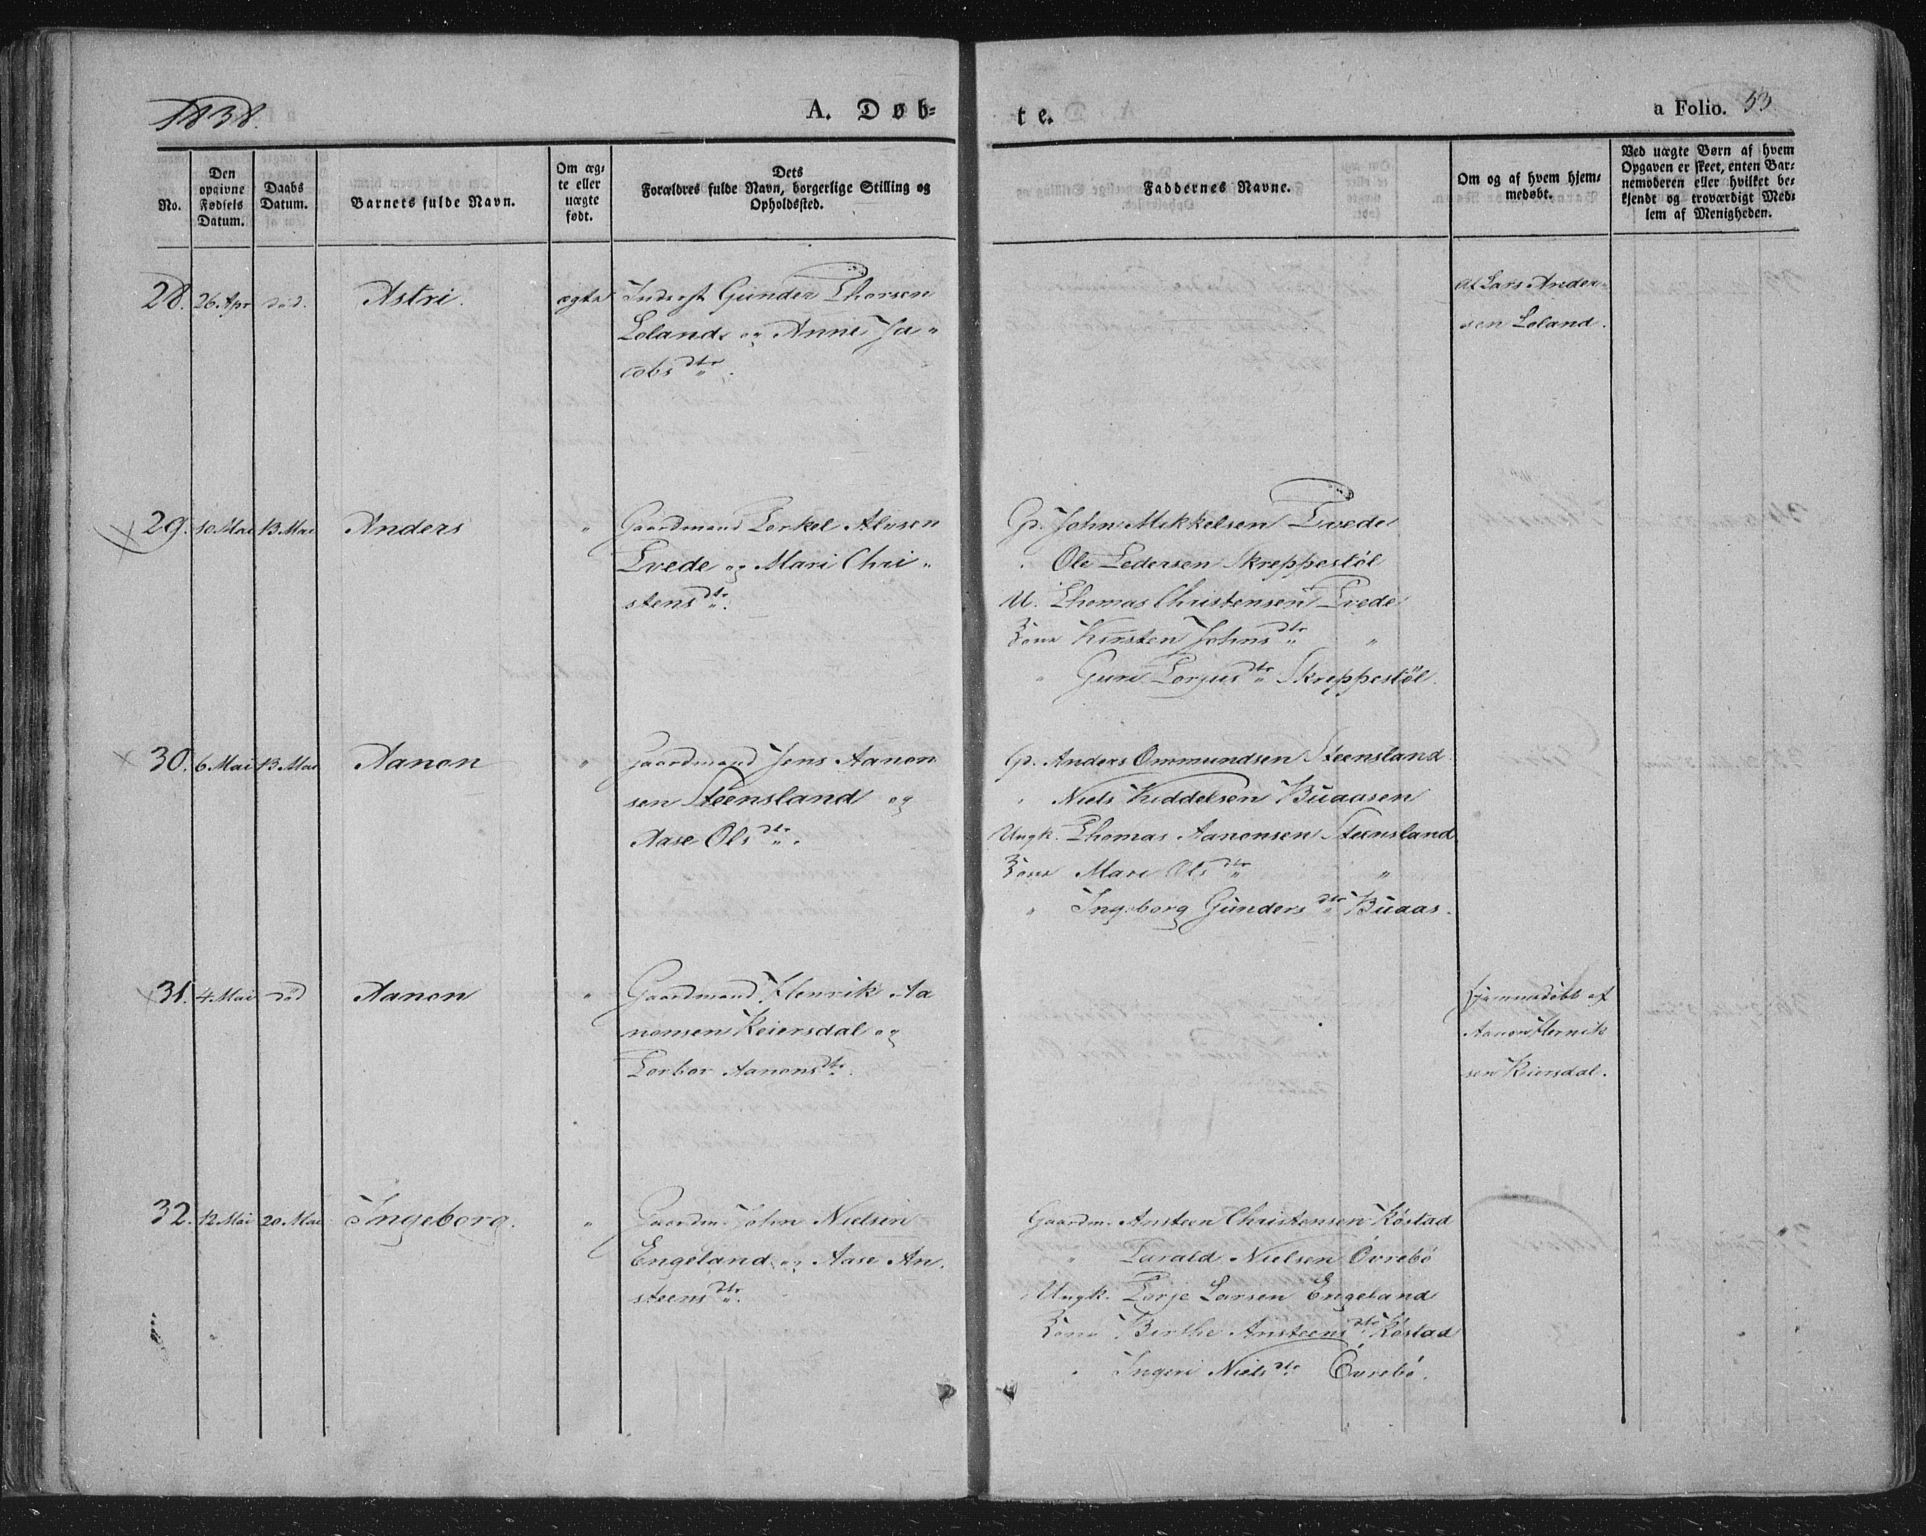 1838.
A. Døb-
te.
a Folio. 53
No.
Den opgivne Fødsels Datum.
Daabs Datum.
Barnets fulde Navn.
Om ægte eller uægte født.
Dets Forældres fulde Navn, borgerlige Stilling og Opholdssted.
Faddernes Navne.
Om og af hvem hjemmedøbt.
Ved uægte Børn af hvem Opgaven er skeet, enten Barnemoderen eller hvilket bekjendt og troværdigt Medlem af Menigheden.
28. 26. Apr død. Astri. ægte
Inderst Gunder Thorsen
Loland og Anne Ja-
cobsdtr.
Af Lars Ander-
sen Loland.
29. 10. Mai 13. Mai Anders "
Gaardmand Torkel Alvsen
Tvede og Mari Chri-
stensdtr.
Gd. John Mikkelsen Tvede
" Ole Pedersen Skreppestøl
U. Thomas Christensen Tvede
Kone Kirsten Johnsdtr "
" Guri Torjusdtr Skreppestøl.
30. 6. Mai 13. Mai Aanon "
Gaardmand Jens Aanon
sen Steensland og
Aase Olsdtr.
Gd. Anders Ommundsen Steensland
" Niels Kiddelsen Buaasen
Ungk. Thomas Aanonsen Steensland
Kone Mari Olsdtr "
" Ingeborg Gundersdtr Buaas.
31. 4. Mai død Aanon "
Gaardmand Henrik Aa
nonsen Keiersdal og
Torbor Aanonsdtr.
Hjemmedøbt af
Aanon Henrik
sen Keiersdal.
32. 12. Mai 20. Mai Ingeborg. "
Gaardm. John Nielsen
Engeland og Aase An-
steensdtr.
Gaardm. Ansteen Christensen Køstad
" Tarald Nielsen Øvrebø
Ungk. Torje Larsen Engeland
Kone Birthe Ansteensdtr Køstad
" Ingeri Nielsdtr Øvrebø.